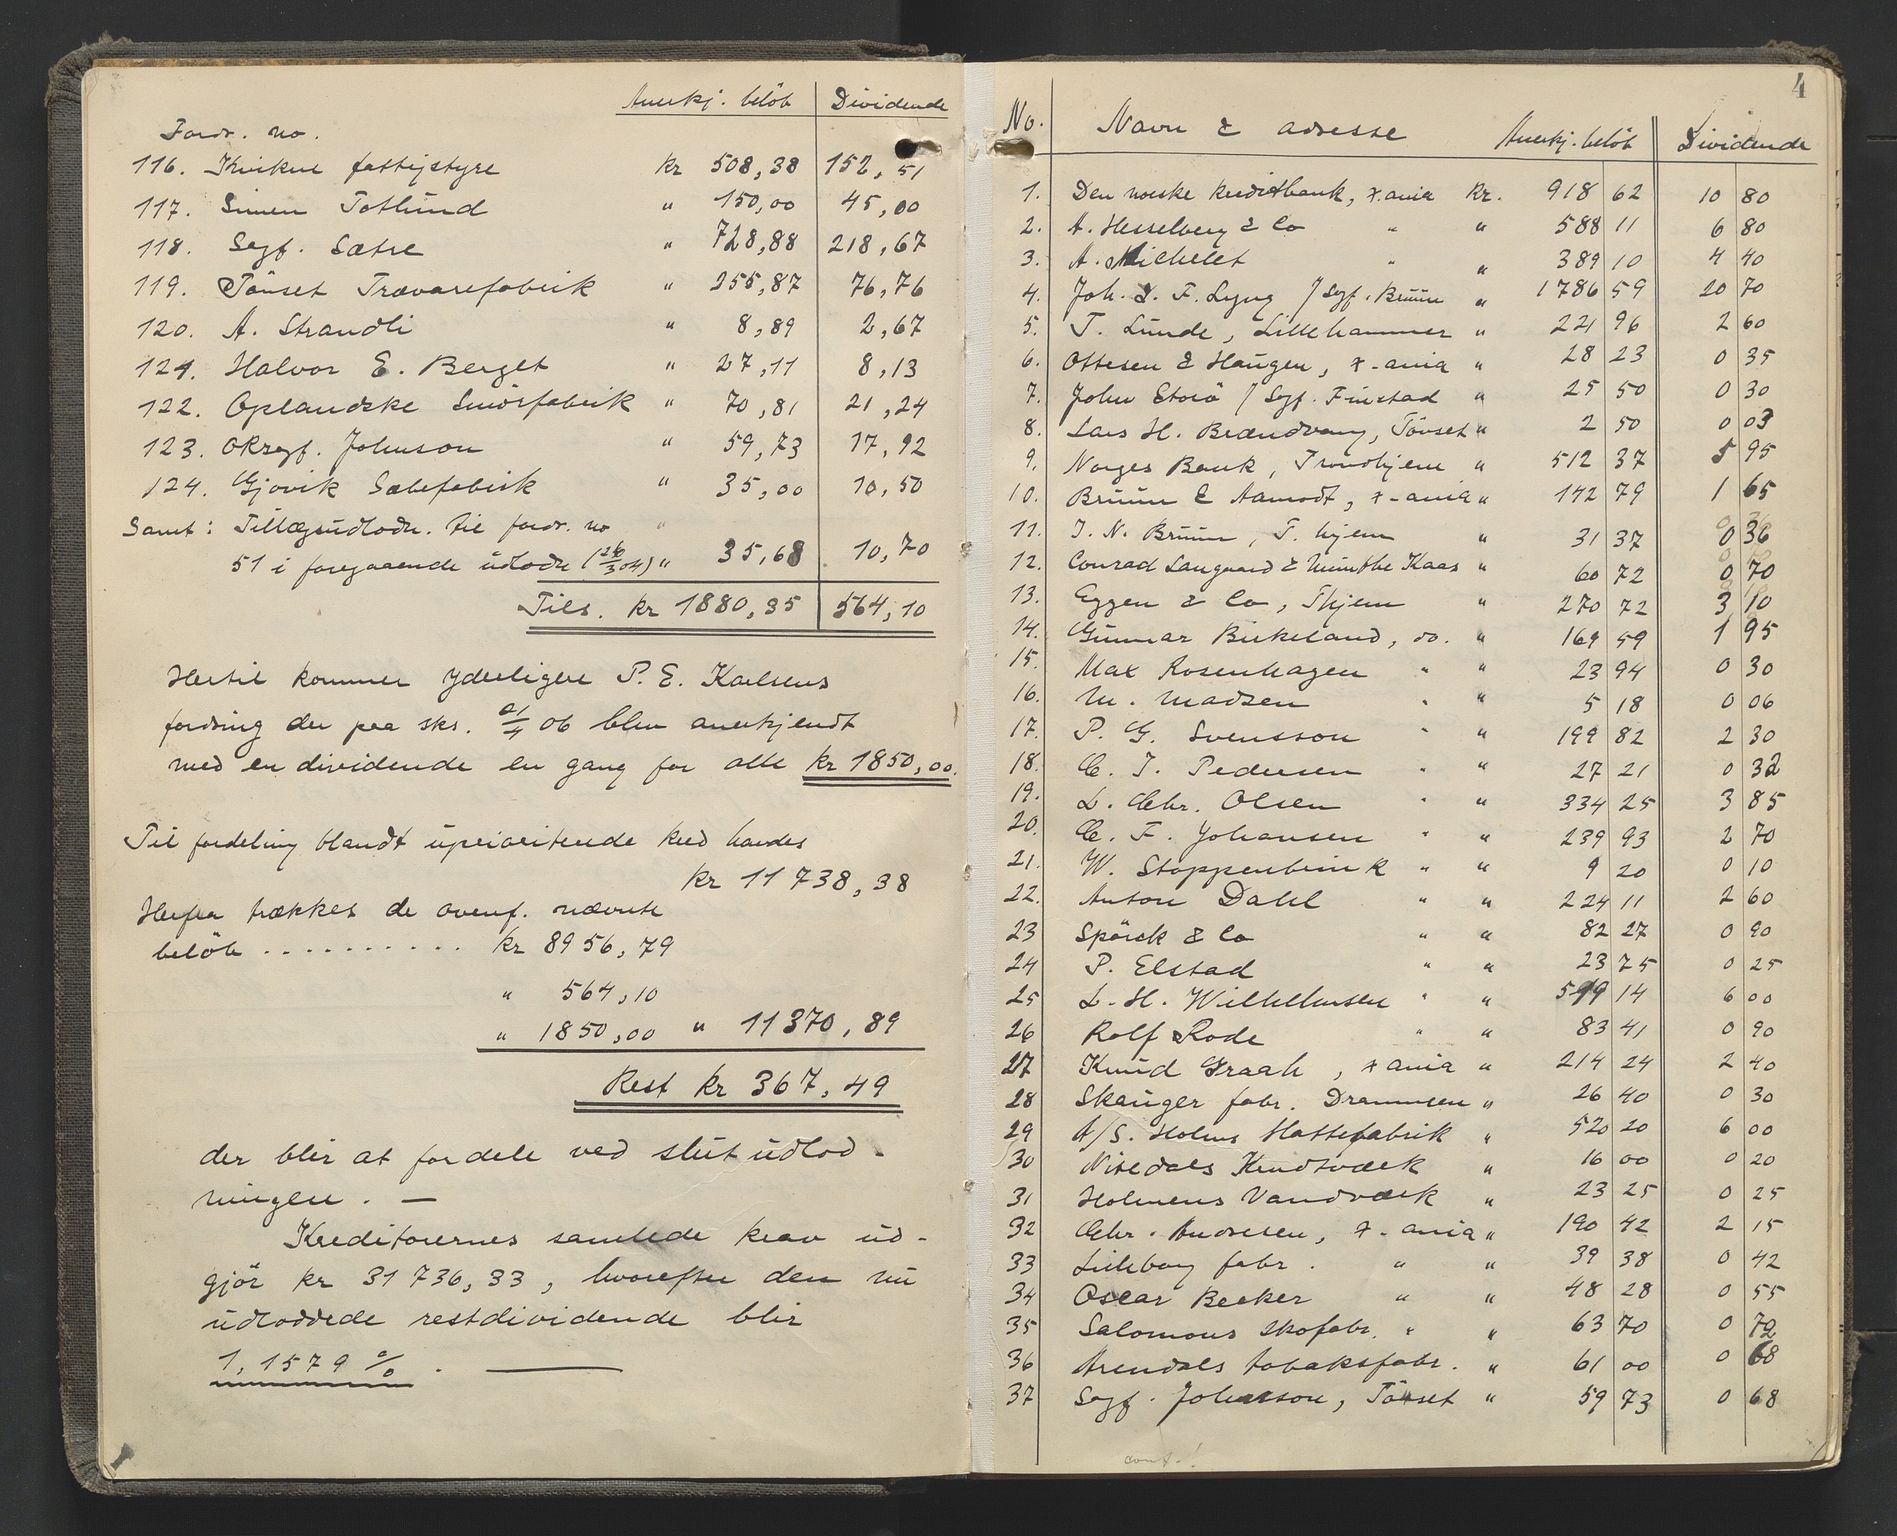 Anerkj. beløb Dividende
Fordr. no.
116. Kvikne fattigstyre kr 508,38 152,51
117. Simen Totlund " 150,00 45,00
118. Sagf. Sætre " 728,88 218,67
119. Tönset Trævarefabrik " 255,87 76,76
120. A. Strandli " 8,89 2,67
121. Halvor E. Berget " 27,11 8,13
122. Oplandske Smörfabrik " 70,81 21,24
123. Okrsgf. Johnson " 59,73 17,92
124. Gjövik Sæbefabrik " 35,00 10,50
Samt: Tillægsudlodn. til fordr. no "
51 i foregaaende udlodn (26/3 04) " 35,68 10,70
Tils. kr 1880,35 564,10
Hertil kommer yderligere P. E. Karlsens
fordring der paa sks. 21/4 06 blev anerkjendt
med en dividende en gang for alle kr 1850,00.
Til fordeling blandt uprioriterede kred havdes
kr 11738,38
Herfra trækkes de ovenf. nævnte
beløb .......... kr 8956,79
" 564,10
" 1850,00 " 11370,89
Rest kr 367,49
der blir at fordele ved slutudlod-
ningen. —
Kreditorernes samlede krav ud-
gjör kr 31736,33, hvorefter den nu
udloddede restdividende blir
1,1579 %. —
4
No. Navn & adresse Anerkj. beløb Dividende
1. Den norske Kreditbank, X.ania kr. 918 62 10 80
2. A. Hesselberg & Co " " 588 11 6 80
3. A. Michelet " " 389 10 4 40
4. Joh. L. F. Lyng / Sagf. Bruun " 1786 59 20 70
5. T. Lunde, Lillehammer " 221 96 2 60
6. Ottesen & Haugen, X-ania " 28 23 0 35
7. John Storö / Sagf. Finstad " 25 50 0 30
8. Lars H. Brændvang, Tönset " 2 50 0 03
9. Norges Bank, Trondhjem " 512 37 5 95
10. Bruun & Aamodt, X-ania " 142 79 1 65
11. J. N. Bruun, T. hjem " 31 37 0 36
12. Conrad Langaard & Munthe Kaas " 60 72 0 70
13. Eggen & Co, Thjem " 270 72 3 10
14. Gunnar Birkeland, do. " 169 59 1 95
15. Max Rosenhagen " " 23 94 0 30
16. M. Madsen " " 5 18 0 06
17. P. G. Svensson " " 199 82 2 30
18. C. J. Pedersen " " 27 21 0 32
19. L. Chr. Olsen " " 334 25 3 85
20. C. F. Johansen " " 239 93 2 70
21. W. Stoppenbrink " " 9 20 0 10
22. Anton Dahl " " 224 11 2 60
23 Spörck & Co " " 82 27 0 90
24 P. Elstad " " 23 75 0 25
25 L. H. Wilhelmsen " " 519 14 6 00
26 Rolf Rode " " 83 41 0 90
27 Knud Graah, X ania " 214 24 2 40
28 Skauger fabr. Drammen " 26 40 0 30
29 A/S. Holms Hattefabrik " 520 20 6 00
30 Nitedals Krudtværk " 16 00 0 20
31 Holmens Vandværk " 23 25 0 25
32 Chr. Andresen, X. ania " 190 42 2 15
33 Lilleborg fabr. " " 39 38 0 42
34 Oscar Becker " " 48 28 0 55
35 Salomons skofabr. " " 63 70 0 72
36 Arendals tobaksfabr. " 61 00 0 68
37 Sagf. Johnsson, Tönset " 59 73 0 68
conf.!